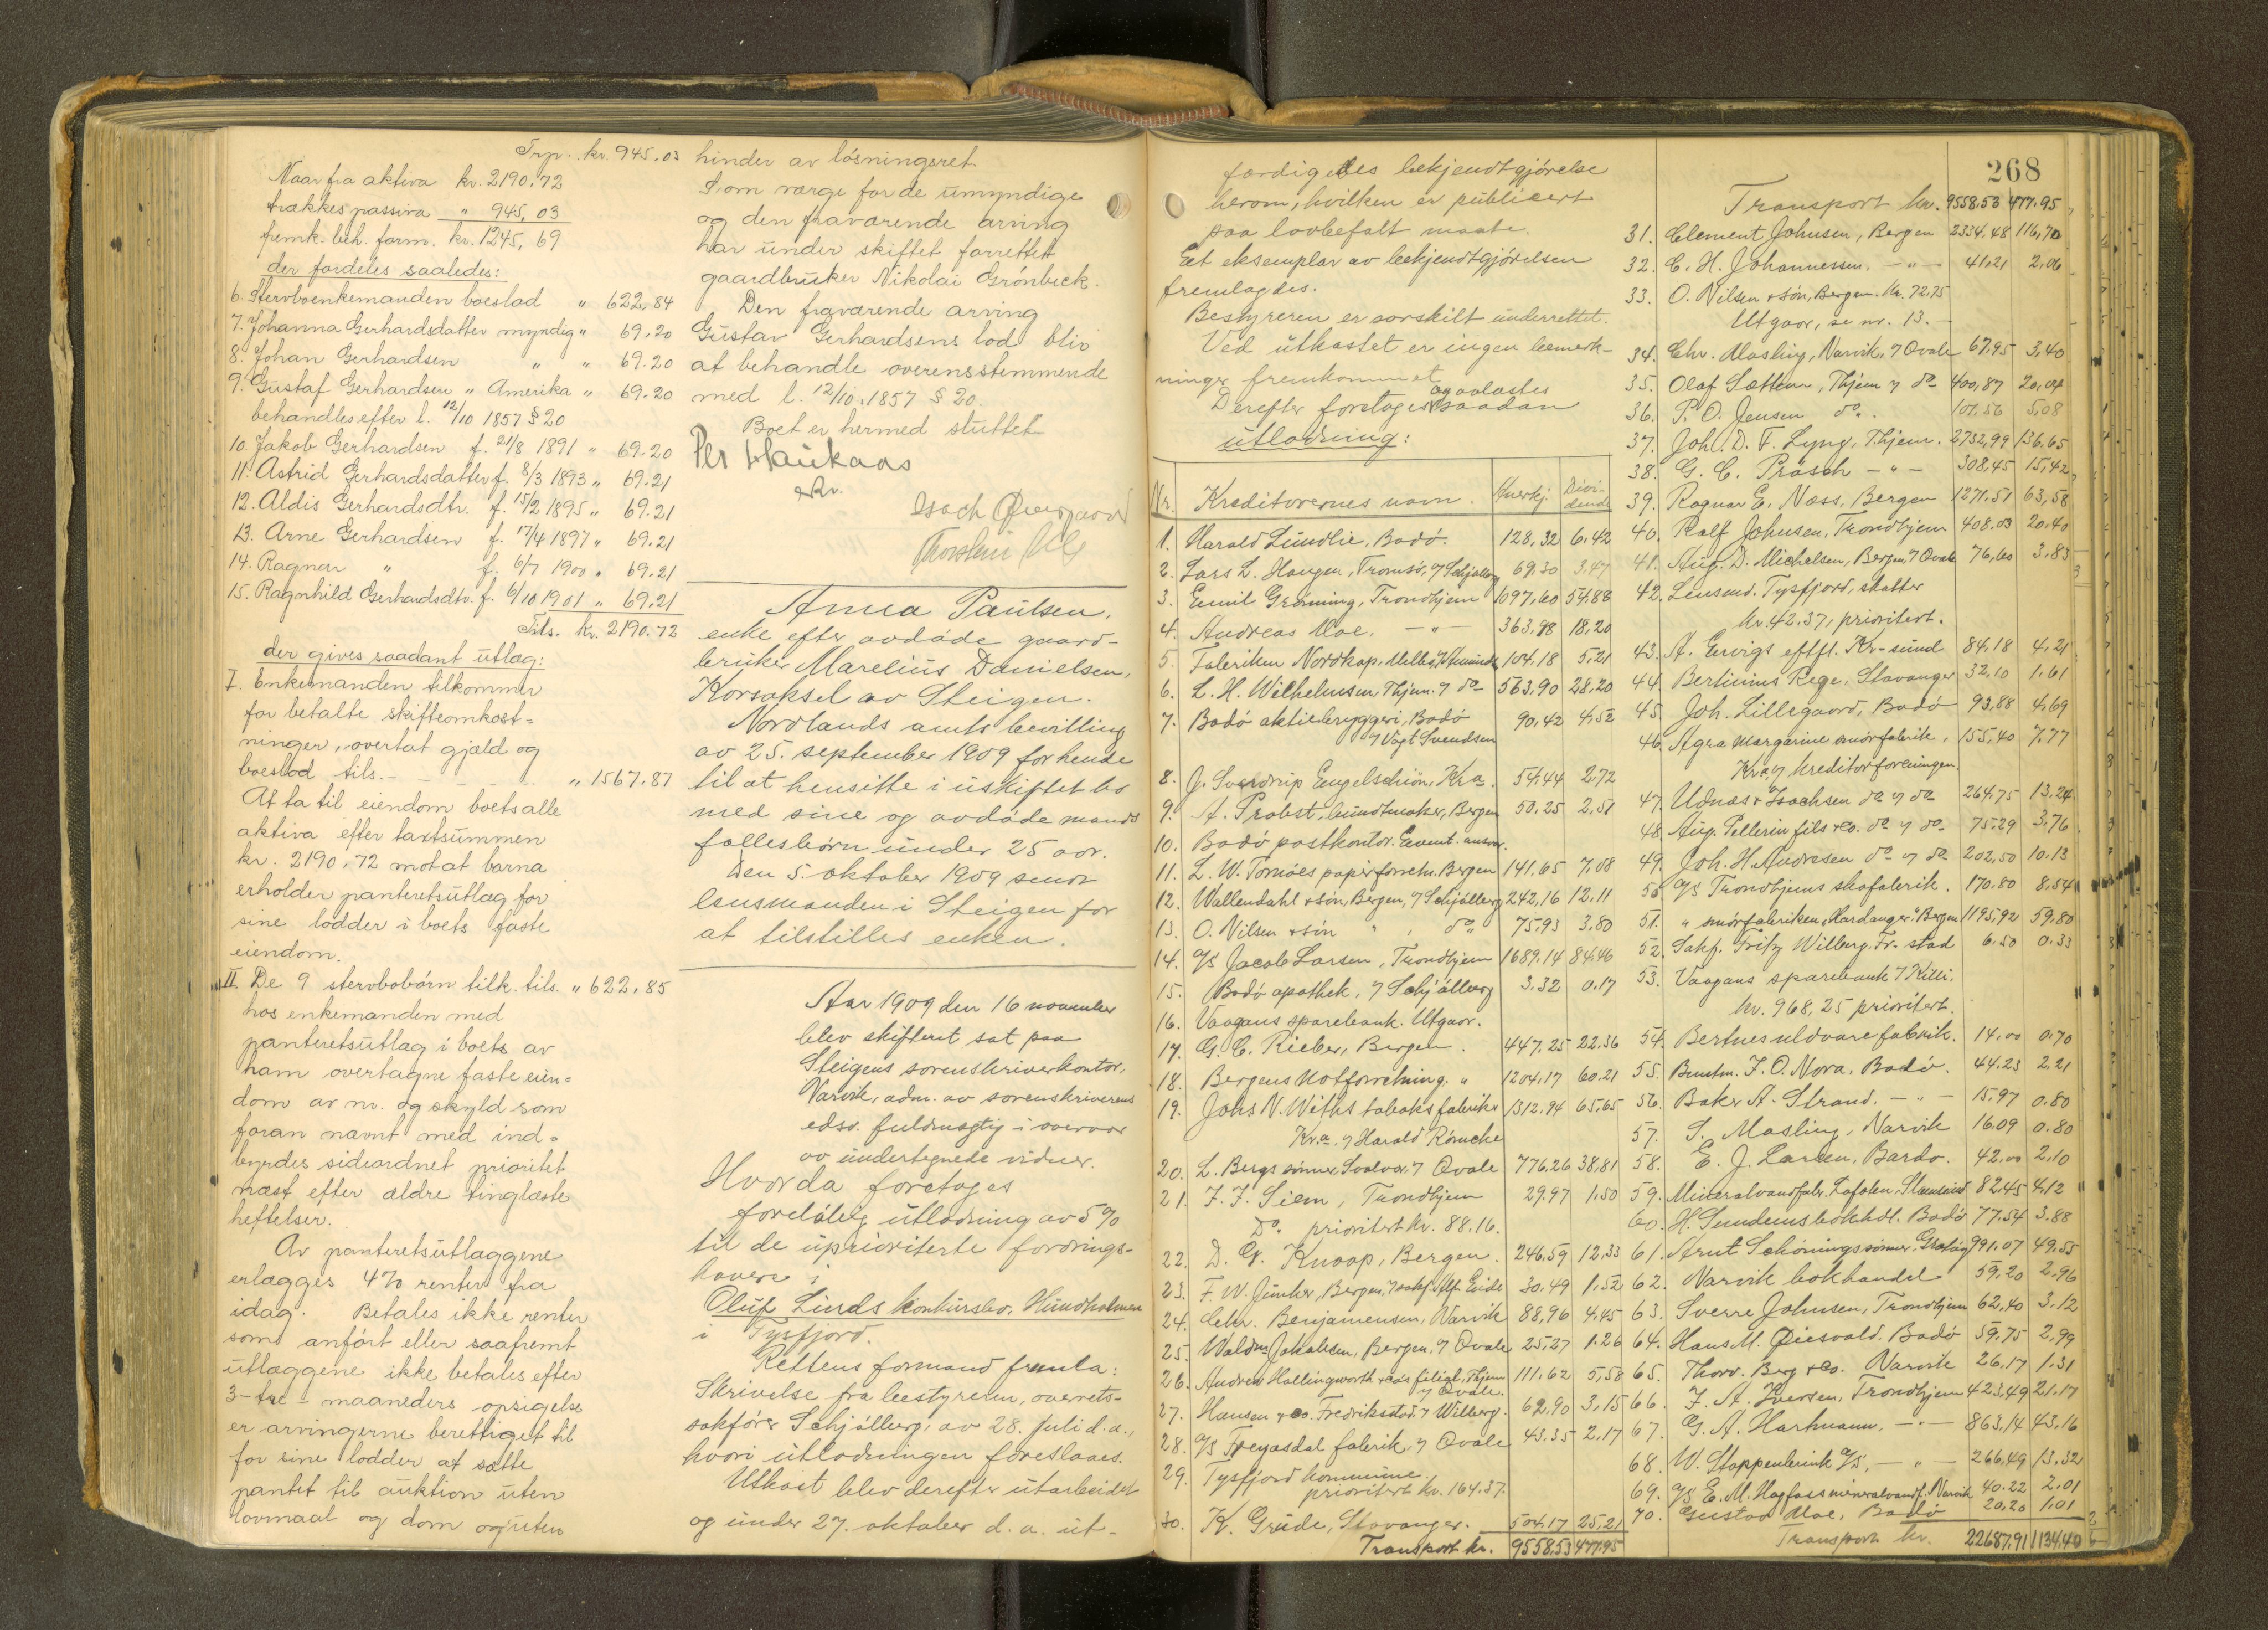 Trp. kr. 945.03
Naar fra aktiva kr. 2190.72
trækkes passiva " 945,03
fremk. beh. form. kr. 1245,69
der fordeles saaledes:
6. Stervboenkemanden boeslod " 622,84
7. Johanna Gerhardsdatter myndig " 69.20
8. Johan Gerhardsen " " 69.20
9. Gustaf Gerhardsen " Amerika " 69.20
behandles efter l. 12/10 1857 § 20
10. Jakob Gerhardsen f. 21/8 1891 " 69.20
11. Astrid Gerhardsdatter f. 8/3 1893 " 69.21
12. Aldis Gerhardsdtr. f. 15/2 1895 " 69.21
13. Arne Gerhardsen f. 17/4 1897 " 69.21
14. Ragnar " f. 6/7 1900 " 69.21
15. Ragnhild Gerhardsdtr. f. 6/10 1901 " 69.21
Tils. kr. 2190.72
der gives saadant utlæg:
I. Enkemanden tilkommer
for betalte skifteomkost=
ninger, overtat gjæld og
boeslod tils. - - " 1567.87
At ta til eiendom boets alle
aktiva efter taxtsummen
kr. 2190.72 mot at barna
erholder panteretsutlæg for
sine lodder i boets faste
eiendom.
II. De 9 stervbobörn tilk. tils. " 622.85
hos enkemanden med
panteretsutlæg i boets av
ham overtagne faste eien=
dom av nr. og skyld som
foran nævnt med ind=
byrdes sideordnet prioritet
næst efter ældre tinglæste
heftelser.
Av panteretsutlæggene
erlægges 4% renter fra
idag. Betales ikke renter
som anført eller saafremt
utlæggene ikke betales efter
3- tre - maaneders opsigelse
er arvingerne berettiget til
for sine lodder at sætte
pantet til auktion uten
lovmaal og dom og uten
hinder av løsningsret.
Som værge for de umyndige
og den fraværende arving
har under skiftet forrettet
gaardbruker Nikolai Grönbeck.
Den fraværende arving
Gustav Gerhardsens lod bliv
at behandle overensstemmende
med l. 12/10 1857 § 20.
Boet er hermed sluttet
Per Haukaas
Anna Paulsen,
enke efter avdøde gaard-
bruker Marelius Danielsen,
Korsaksel av Steigen.
Nordlands amts bevilling
av 25. september 1909 for hende
til at hensitte i uskiftet bo
med sine og avdøde mands
fællesbörn under 25 aar.
Den 5. oktober 1909 sendt
lensmanden i Steigen for
at tilstilles enken.
Aar 1909 den 16 november
blev skifteret sat paa
Steigens sorenskriverkontor,
Narvik, adm. av sorenskriverens
edsv. fuldmægtig i overvær
av undertegnede vidner.
Hvorda foretoges
foreløbig utlodning av 5%
til de uprioriterte fordrings-
havere i
Oluf Linds konkursbo, Hundholmen
i Tysfjord.
Rettens formand fremla:
Skrivelse fra bestyreren, overrets-
sakfører Schjölberg, av 28. juli d.a.,
hvori utlodningen foreslaaes.
Utkast blev derefter utarbeidet
og under 27. oktober d.a. ut-
færdigedes bekjendtgjörelse
herom, hvilken er publicert
paa lovbefalt maate.
Et eksemplar av bekjendtgjörelsen
fremlagdes.
Bestyreren er særskilt underrettet.
Ved utkastet er ingen bemerk-
ninger fremkommet
Derefter foretoges og avlastes saadan
utlodning:
Nr. Kreditorernes navn. Anerkj. Divi-dende
1. Harald Lundlie, Bodö. 128,32 6,42
2. Lars L. Haugen, Tromsö, v/ Schjölberg 69.30 3.47
3. Emil Grönning, Trondhjem 1097,60 54,88
4. Andreas Moe. - " - 363.98 18,20
5. Fabriken Nordkap, Melbo, v/ Amundsen 104,18 5,21
6. L. H. Wilhelmsen, Thjem. v/ do 563,90 28,20
7. Bodö aktiebryggeri, Bodö 90,42 4,52
v/ Vogt Svendsen
8. J. Sverdrup Engelschiön, Kra. 54,44 2,72
9. A. Probst, bundtmaker, Bergen 50.25 2,51
10. Bodö postkontor. Event. ansvar.
11. L. W. Tornöes papirforretn. Bergen 141.65 7,08
12. Wallendahl & sön, Bergen, v/ Schjölberg 242,16 12.11
13. O. Nilsen & sön " , do 75.93 3.80
14. A/S Jacob Larsen, Trondhjem 1689.14 84.46
15. Bodö apothek, v/ Schjölberg 3.32 0.17
16. Vaagans sparebank. Utgaar.
17. G. C. Rieber, Bergen. 447,25 22.36
18. Bergens Notforretning. " 1204,17 60.21
19. Johs N. Withs tobaksfabrikk 1312.94 65,65
Kr.a v/ Harald Römcke
20. L. Bergs sönner, Svolvær v/ Qvale 776.26 38,81
21. J. J. Siem, Trondhjem 29.97 1.50
Do. prioritert kr. 88.16.
22. D. G. Knoop, Bergen. 246.59 12,33
23. F. W. Junker, Bergen, v/ sakf. Alf Eide 30.49 1.52
24. Chr. Benjamensen, Narvik 88,96 4.45
25. Waldm Jakobsen, Bergen, v/ Qvale 25,27 1.26
26. Andrew Hollingworth & Co's filial, Thjem 111.62 5,58
v/ Qvale.
27. Hansen & Co. Fredriksstad. v/ Wilberg. 62,90 3,15
28. A/S Freyasdal fabrik, v/ Qvale 43.35 2.17
29. Tysfjord kommune.
prioritert kr. 164.37.
30. K. Grude, Stavanger. 504.17 25,21
Transport kr. 9558.53 477.95
268
Transport kr. 9558.53 477.95
31. Clement Johnsen, Bergen 2334,48 116,70
32. C. H. Johannessen. - " - 41.21 2,06
33. O. Nilsen & sön, Bergen. Kr. 72.75
Utgaar, se nr. 13. -
34. Chr. Masling, Narvik, v/ Qvale 67.95 3,40
35. Olaf Sættem, Thjem v/ do 400,87 20,04
36. P. O. Jensen do. 101.56 5,08
37. Joh. D. F. Lyng, Thjem. 2732,99 136.65
38. G. C. Präsch - " - 308,45 15,42
39. Ragnar E. Næss, Bergen 1271.51 63,58
40. Rolf Johnsen, Trondhjem 408.03 20.40
41. Aug. D. Michelsen, Bergen, v/ Qvale 76,60 3.83
42. Lensmd. Tysfjord, skatter
kr. 42.37, prioritert.
43. A. Envigs eftfl. Kr-sund 84,18 4,21
44. Bertinius Rege, Stavanger 32,10 1.61
45. Joh. Lillegaard, Bodö 93,88 4,69
46. Agra margarine smörfabrik, 155,40 7.77
Kra v/ kreditorforeningen.
47. Udnæs & Isachsen do v/ do 264,75 13.24
48. Aug. Pellerin fils & Co. do v/ do 75.29 3,76
49. Joh. H. Andresen do v/ do 202,50 10.13
50. A/S Trondhjems skofabrik. 170.80 8,54
51. " smörfabriken "Hardanger", Bergen 1195,92 59.80
52. Sakf. Fritz Wilberg. Fr. stad 6.50 0.33
53. Vaagans sparebank v/ Killi.
kr. 968,25 prioritert.
54. Bertnes uldvarefabrik. 14.00 0.70
55. Bundtm. J. O. Nora, Bodö. 44.23 2,21
56. Baker A. Strand. - " - 15.97 0.80
57. S. Masling, Narvik 16.09 0.80
58. E. J. Larsen, Bardo. 42.00 2,10
59. Mineralvandfabr. Lofoten, Stamsund 82,45 4,12
60. H. Sundems bokhdl. Bodö 77.54 3.88
61. Arnt Schönings sönner, Gratög 991.07 49,55
62. Narvik bokhandel 59.20 2.96
63. Sverre Johnsen, Trondhjem 62,40 3.12
64. Hans M. Qiesvold. Bodö 59.75 2,99
65. Thorv. Berg & Co. Narvik 26,17 1.31
66. J. A. Iversen, Trondhjem 423,49 21.17
67. G. A. Hartmann, - " - 863,14 43,16
68. W. Stoppenbrink A/S, - " - 266,49 13.32
69. A/S E. M. Hagfoss mineralvandf. Narvik 40.22 2.01
70. Gustav Moe, Bodö 20,20 1.01
Transport kr. 22687,91 1134.40